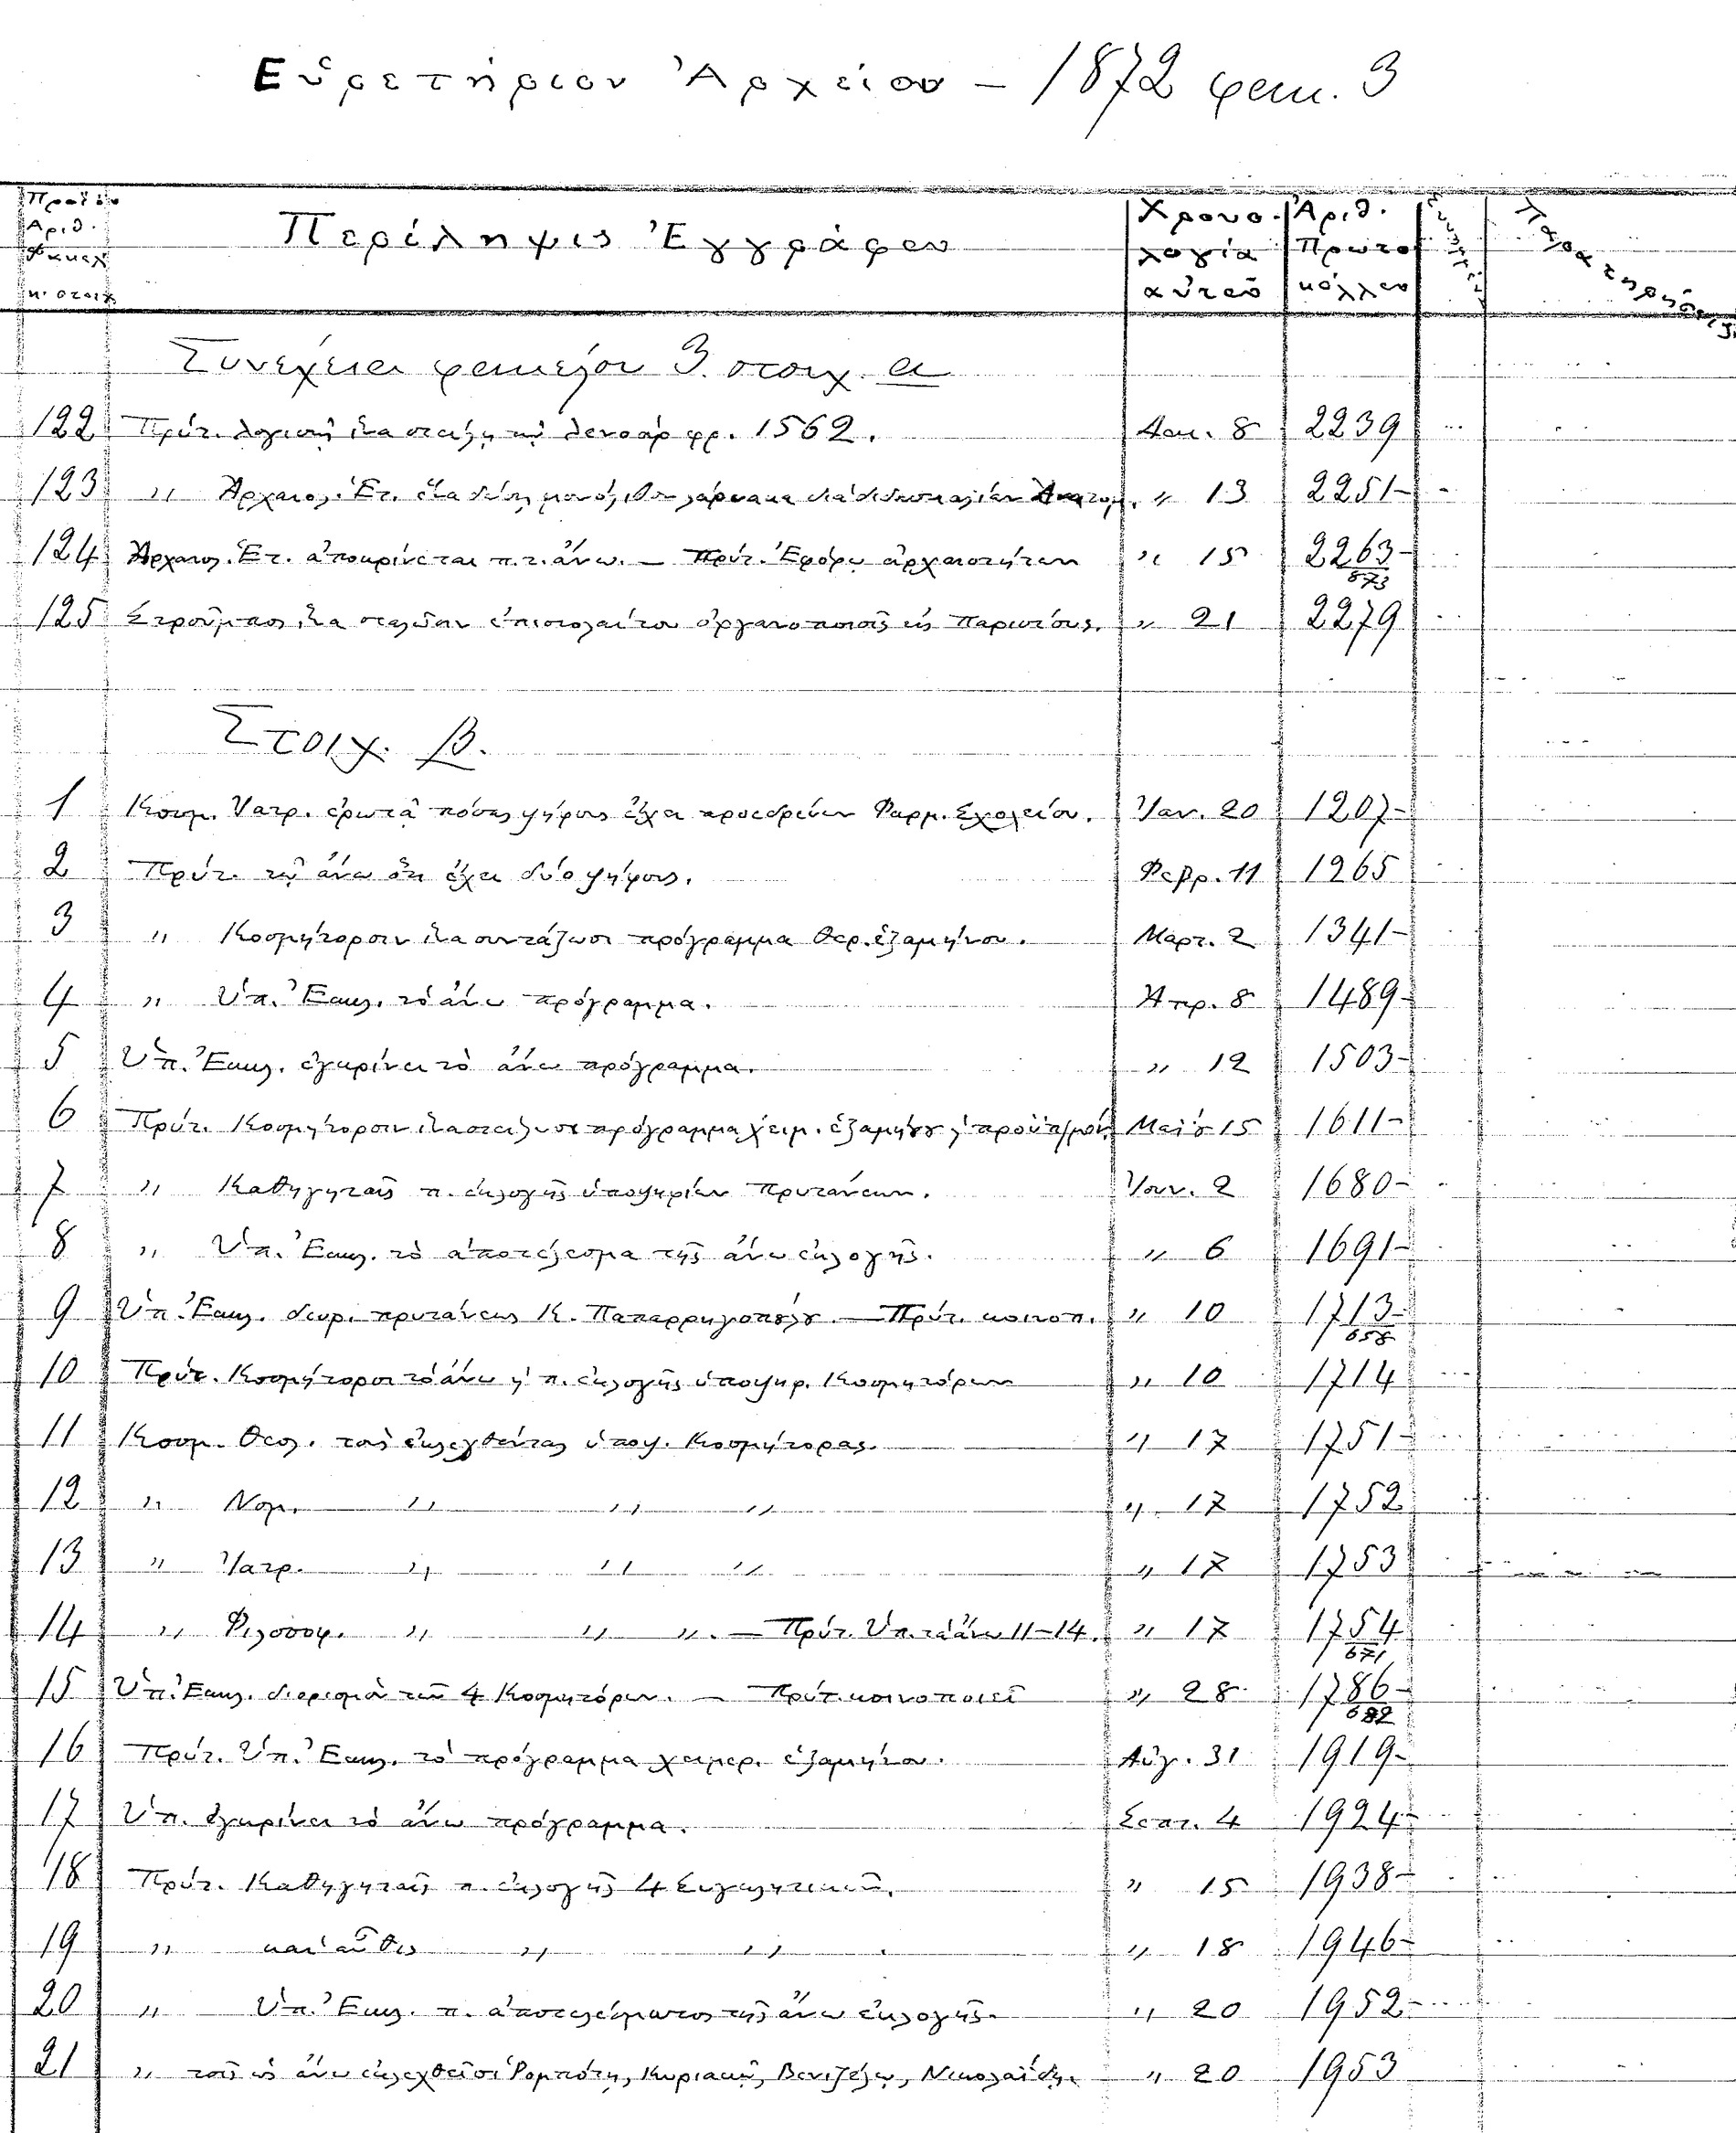 Εὑρετήριον Ἀρχείου – 1872 φακ. 3
Ἀριθ.
Περίληψις Ἐγγράφου
Χρονολογία αὐτοῦ
Ἀριθ. Πρωτοκόλλου
Παρατηρήσεις
Συνέχεια φακέλου 3. στοιχ. α
122 Πρύτ. ἵνα φρ. 1562. Δεκ. 8 2239
123 〃 Ἀρχαιολ. Ἑτ. ἵνα 〃 13 2251
124 Ἀρχαιολ. Ἑτ. ἀποκρίνεται π. τ. ἄνω. – Πρύτ. Ἐφόρῳ ἀρχαιοτήτων 〃 15 2263
573
125 Στροῦμπος ἵνα σταλῶσιν ὀργανοποιοὺς εἰς Παρισίους. 〃 21 2279
Στοιχ. β.
1 Κοσμ. Ἰατρ. ἐρωτᾷ πόσας ψήφους ἔχει προεδρεύων Φαρμ. Σχολείου. Ἰαν. 20 1207
2 Πρύτ. τῷ ἄνω ὅτι ἔχει δύο ψήφους. Φεβρ. 11 1265
3 〃 Κοσμήτορσιν ἵνα συντάξωσι πρόγραμμα θερ. ἑξαμήνου. Μαρτ. 2 1341
4 〃 Ὑπ. Ἐκκλ. τὸ ἄνω πρόγραμμα. Ἀπρ. 8 1489
5 Ὑπ. Ἐκκλ. ἐγκρίνει τὸ ἄνω πρόγραμμα. 〃 12 1503
6 Πρύτ. Κοσμήτορσιν ἵνα στείλωσι πρόγραμμα χειμ. ἑξαμήνου Μαΐου 15 1611
7 〃 Καθηγηταῖς π. ἐκλογῆς ὑποψηφίων Πρυτάνεων. Ἰουν. 2 1680
8 〃 Ὑπ. Ἐκκλ. τὸ ἀποτέλεσμα τῆς ἄνω ἐκλογῆς. 〃 6 1691
9 Ὑπ. Ἐκκλ. διορ. πρυτάνεως Κ. Παπαρρηγοπούλου. – Πρύτ. κοινοπ. 〃 10 1713
658
10 Πρύτ. Κοσμήτορσι τὸ ἄνω π. ἐκλογῆς ὑποψηφ. Κοσμητόρων 〃 10 1714
11 Κοσμ. Θεολ. τοὺς ἐκλεχθέντας ὑποψ. Κοσμήτορας. 〃 17 1751
12 〃 Νομ. 〃 〃 〃 〃 17 1752
13 〃 Ἰατρ. 〃 〃 〃 〃 17 1753
14 〃 Φιλοσοφ. 〃 〃 〃. – Πρύτ. Ὑπ. τὰ ἄνω 11–14. 〃 17 1754
671
15 Ὑπ. Ἐκκλ. διορισμὸν τῶν 4 Κοσμητόρων. – Πρύτ. κοινοποιεῖ 〃 28 1786
682
16 Πρύτ. Ὑπ. Ἐκκλ. τὸ πρόγραμμα χειμερ. ἑξαμήνου. Αὐγ. 31 1919
17 Ὑπ. ἐγκρίνει τὸ ἄνω πρόγραμμα. Σεπτ. 4 1924
18 Πρύτ. Καθηγηταῖς π. ἐκλογῆς 4 Συγκλητικῶν. 〃 15 1938
19 〃 καὶ αὖθις 〃 〃 . 〃 18 1946
20 〃 Ὑπ. Ἐκκλ. π. ἀποτελέσματος τῆς ἄνω ἐκλογῆς. 〃 20 1952
21 〃 τοῖς ὡς ἄνω ἐκλεχθεῖσι Ῥομπότῃ, Κυριακῷ, Βενιζέλῳ, Νικολαΐδῃ. 〃 20 1953